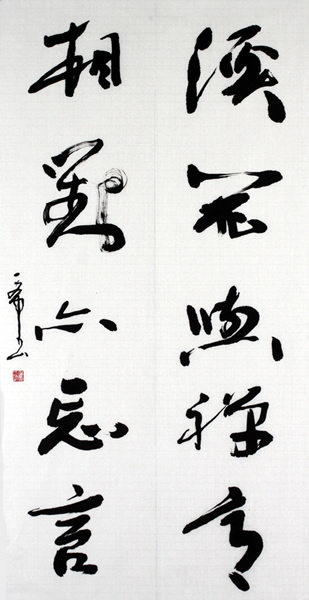 溪花與禪意
相對亦忘言